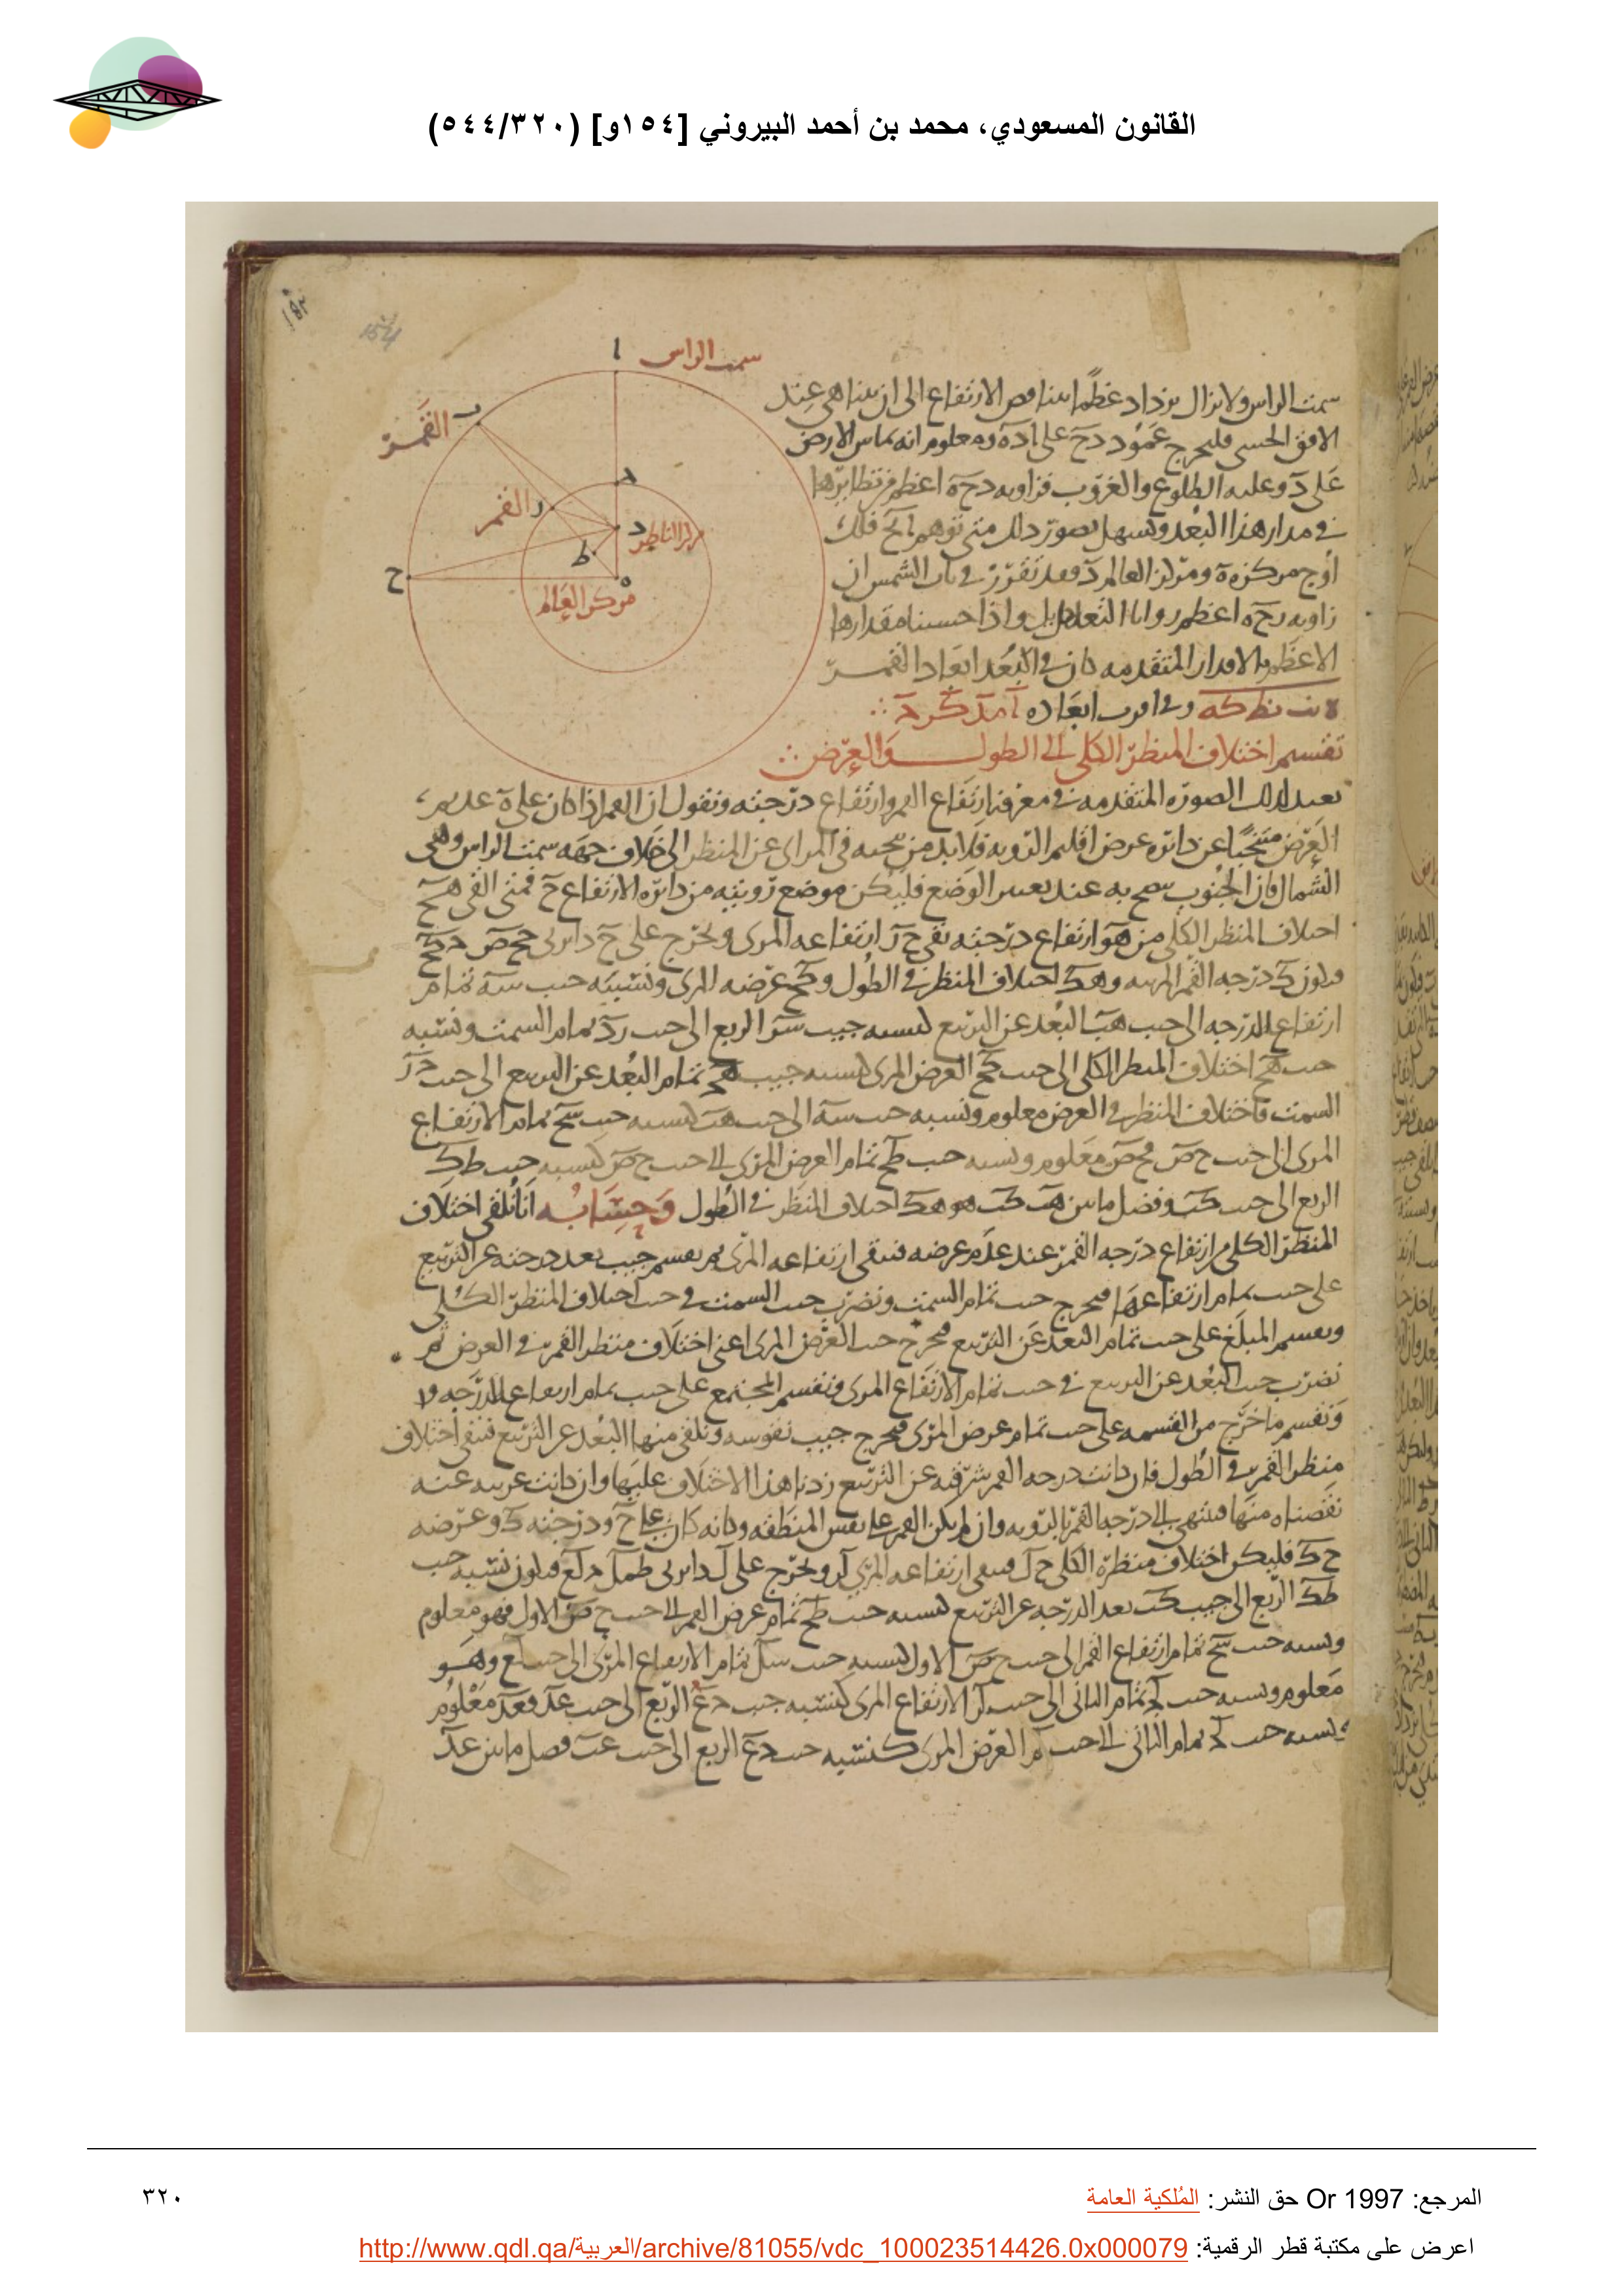 القانون المسعودي، محمد بن أحمد البيروني [١٥٤و] (٥٤٤/٣٢٠)
154
سمت الراس
ا
ب القمر
ر القمر
د مركز الناظر
ط
ح
ه
مركز العالم
سمت الراس ولا يزال يزداد عظمًا بتناقص الارتفاع الى ان يتناهى عند
الافق الحسى فليخرج عمود دح على اده ومعلوم انه يماس الارض
على د وعليه الطلوع والغروب فزاويه دحه اعظم من نظايرها
فى مدار هذا البعد ويسهل تصور ذلك متى توهم اح فلك
اوج مركزه ه ومركز العالم د وقد تقرر فى باب الشمس ان
زاويه دحه اعظم زوايا التعديل واذا حسبنا مقدارها
الاعظم بالاقدار المتقدمه كان فى البعد ابعاد القمر
وفى اقرب ابعاده
تقسيم اختلاف المنظر الكلى الى الطول والعرض
نعيد لذلك الصوره المتقدمه فى معرفه ارتفاع القمر وارتفاع درجته ونقول ان القمر اذا كان على ه عديم
العرض متنحيًا عن دائره عرض اقليم الرويه فلابد من تنحيه فى المراى عن المنظر الى خلاف جهه سمت الراس وهى
الشمال فان الجنوب عند الوضع فليكن موضع رويته من دائره الارتفاع ح فمتى القى هح
اختلاف المنظر الكلى من هو ارتفاع درجته بقى حر ارتفاعه المرى ونخرج على ح دايرتى
فيكون ك درجه القمر المرييه و هك اختلاف المنظر فى الطول وكح عرضه المرى ونسبه جيب سه تمام
ارتفاع الدرجه الى جيب البعد عن التربيع كنسبه جيب سر الربع الى جيب رد تمام السمت ونسبه
جيب هح اختلاف المنظر الكلى الى جيب كح العرض المرى كنسبه جيب تمام البعد عن التربيع الى جيب
السمت فاختلاف المنظر فى العرض معلوم ونسبه جيب سه الى جيب كنسبه جيب سح تمام الارتفاع
المرى الى جيب حص فحص معلوم ونسبه جيب طح تمام العرض المرى الى جيب حص كنسبه جيب طك
الربع الى جيب وفضل ما بين هو هك اختلاف المنظر فى الطول وحسابه انا نلقى اختلاف
المنظر الكلى من ارتفاع درجه القمر عند عدم عرضه فيبقى ارتفاعه المرى ثم نقسم جيب بعد درجته عن التربيع
على جيب تمام ارتفاعها فيخرج جيب تمام السمت ونضرب جيب السمت فى جيب اختلاف المنظر الكلى
ونقسم المبلغ على جيب تمام البعد عن التربيع فيخرج جيب العرض المرى اعنى اختلاف منظر القمر فى العرض ثم
نضرب جيب البعد عن التربيع فى جيب تمام الارتفاع المرى ونقسم المجتمع على جيب تمام ارتفاع الدرجه
ونقسم ما خرج من القسمه على جيب تمام عرض المرى فيخرج جيب نقوسه ونلقى منها البعد عن التربيع فيبقى اختلاف
منظر القمر فى الطول فان كانت درجه القمر شرقيه عن التربيع زدنا هذا الاختلاف عليها وان كانت غربيه عنه
نقصناه منها فينتهى الى درجه القمر بالرويه وان لم يكن القمر على نفس المنطقه وكانه كان على ح ودرجته ك وعرضه
حك فليكن اختلاف منظره الكلى حل فيبقى ارتفاعه المرى لر ونخرج على ل دايرتى فيكون نسبه جيب
طك الربع الى جيب بعد الدرجه عن التربيع كنسبه جيب طح تمام عرض القمر الى جيب حص الاول فهو معلوم
ونسبه جيب سح تمام ارتفاع القمر الى جيب حص الاول كنسبه جيب سل تمام الارتفاع المرى الى جيب لع وهو
معلوم ونسبه جيب تمام الثانى الى جيب لر الارتفاع المرى كنسبه جيب الربع الى جيب عد فعد معلوم
ونسبه جيب تمام الثانى الى جيب لم العرض المرى كنسبه جيب الربع الى جيب فضل ما بين عد
المرجع: Or 1997 حق النشر: المُلكية العامة
٣٢٠
اعرض على مكتبة قطر الرقمية: http://www.qdl.qa/العربية/archive/81055/vdc_100023514426.0x000079